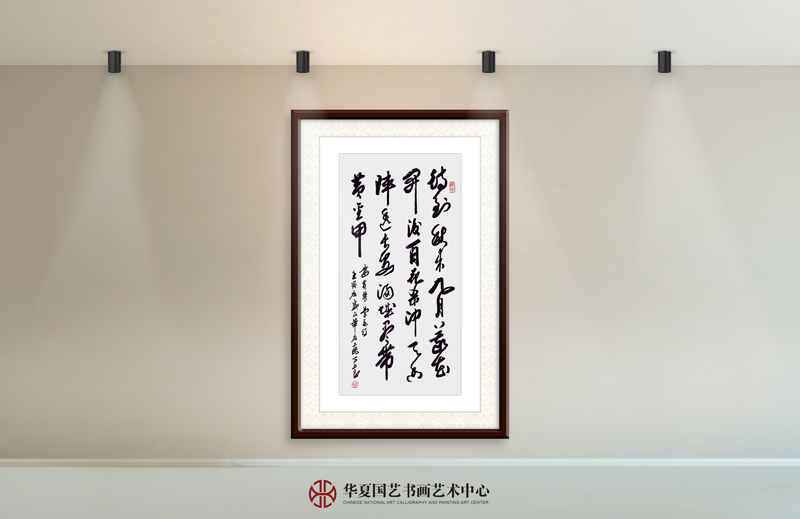 待到秋来九月八我花
開後百花杀冲天香
陣透长安满城尽带
黄金甲
华夏国艺书画艺术中心
CHINESE NATIONAL ART CALLIGRAPHY AND PAINTING ART CENTER